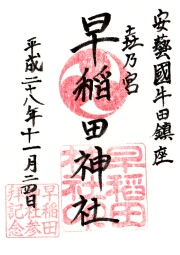 安藝國牛田鎮座
㐂乃宮
早稲田神社
平成二十八年十一月二四日
早稲田神社参拝記念